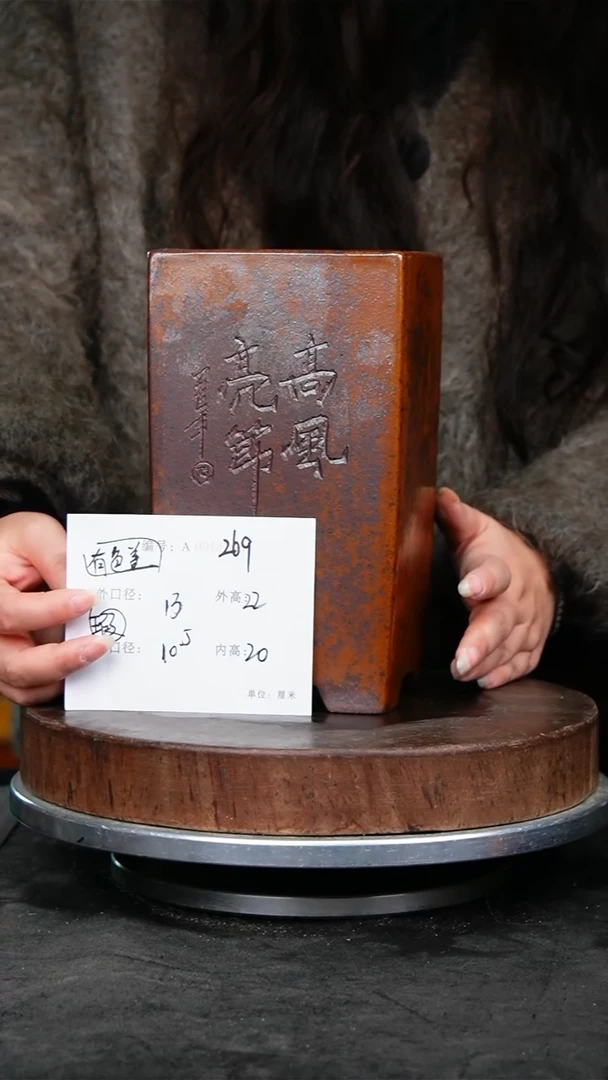 高風
亮節
编号：A 269
有色差
外口径：13 外高：22
口径：10.5 内高：20
单位：厘米